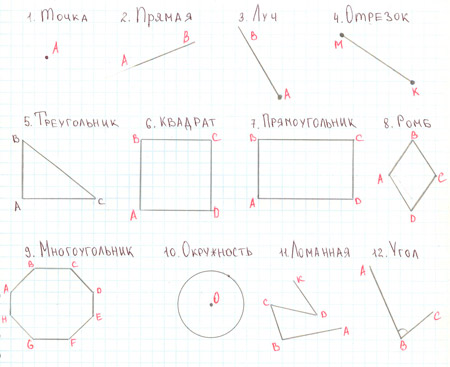 1. Точка
A
2. Прямая
A B
3. Луч
B
A
4. Отрезок
M
K
5. Треугольник
B
A C
6. Квадрат
B C
A D
7. Прямоугольник
B C
A D
8. Ромб
B
A C
D
9. Многоугольник
B C
A D
H E
G F
10. Окружность
O
11. Ломанная
K
C D
A
B
12. Угол
A
C
B